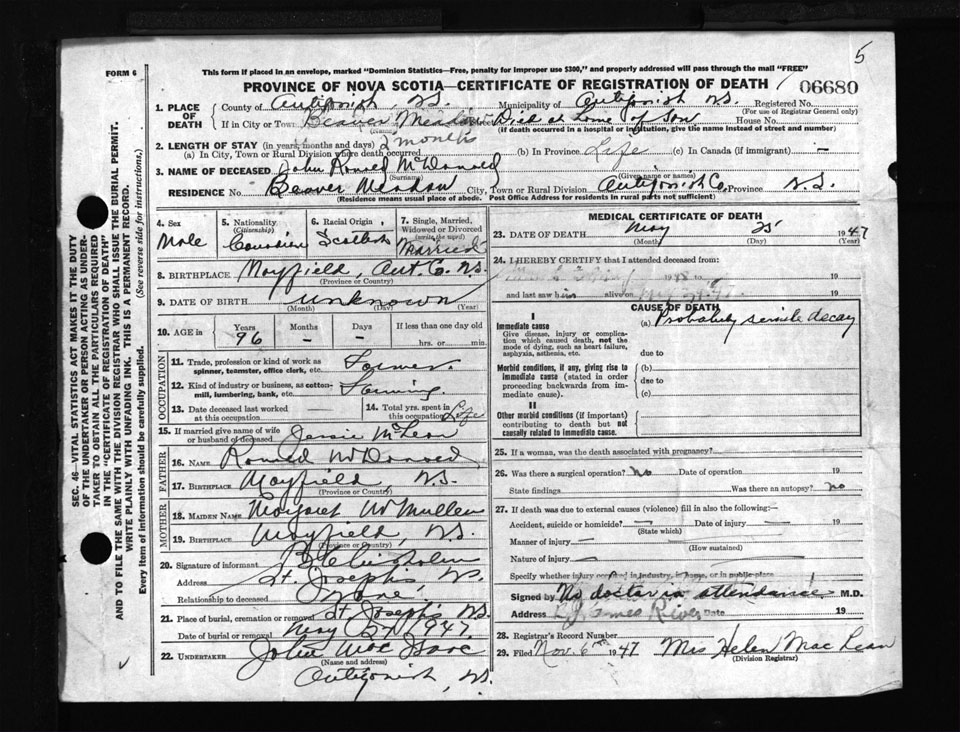 5
FORM 6
This form if placed in an envelope, marked "Dominion Statistics—Free, penalty for improper use $300," and properly addressed will pass through the mail "FREE"
PROVINCE OF NOVA SCOTIA—CERTIFICATE OF REGISTRATION OF DEATH 06680
1. PLACE OF DEATH County of Antigonish, N.S. Municipality of Antigonish N.S. Registered No.
(For use of Registrar General only)
If in City or Town Beaver Meadow Died at home of son House No.
(Name) (If death occurred in a hospital or institution, give the name instead of street and number)
2. LENGTH OF STAY (in years, months and days) 2 months
(a) In City, Town or Rural Division where death occurred (b) In Province Life (c) In Canada (if immigrant) —
3. NAME OF DECEASED John Romed McDonald
(Surname) (Given name or names)
RESIDENCE No. Beaver Meadow City, Town or Rural Division Antigonish Co. Province N.S.
(Residence means usual place of abode. Post Office Address for residents in rural parts not sufficient)
4. Sex Male
5. Nationality (Citizenship) Canadian
6. Racial Origin Scottish
7. Single, Married, Widowed or Divorced (write the word) Married
8. BIRTHPLACE Mayfield, Ant. Co. N.S.
(Province or Country)
9. DATE OF BIRTH unknown
(Month) (Day) (Year)
10. AGE in Years 96 Months – Days – If less than one day old hrs. or min.
OCCUPATION
11. Trade, profession or kind of work as spinner, teamster, office clerk, etc. Farmer.
12. Kind of industry or business, as cotton-mill, lumbering, bank, etc. Farming.
13. Date deceased last worked at this occupation
14. Total yrs. spent in this occupation Life
15. If married give name of wife or husband of deceased Jessie McLean
FATHER
16. NAME Romed McDonald,
17. BIRTHPLACE Mayfield, N.S.
(Province or Country)
MOTHER
18. MAIDEN NAME Margaret McMullen
19. BIRTHPLACE Mayfield, N.S.
(Province or Country)
20. Signature of informant
Address St. Joseph's N.S.
Relationship to deceased None
21. Place of burial, cremation or removal St. Joseph's N.S.
Date of burial or removal May 27 1947.
22. UNDERTAKER John Mac Isaac
(Name and address)
Antigonish, N.S.
MEDICAL CERTIFICATE OF DEATH
23. DATE OF DEATH May 25 1947
(Month) (Day) (Year)
24. I HEREBY CERTIFY that I attended deceased from:
19 to 19
and last saw him alive on 19
CAUSE OF DEATH
I
Immediate cause (a) Probably senile decay
Give disease, injury or complication which caused death, not the mode of dying, such as heart failure, asphyxia, asthenia, etc.
due to
Morbid conditions, if any, giving rise to immediate cause (stated in order proceeding backwards from immediate cause). (b)
due to
(c)
II
Other morbid conditions (if important) contributing to death but not causally related to immediate cause.
25. If a woman, was the death associated with pregnancy?
26. Was there a surgical operation? no Date of operation 19
State findings Was there an autopsy? no
27. If death was due to external causes (violence) fill in also the following:
Accident, suicide or homicide? — Date of injury — 19
(State which)
Manner of injury —
(How sustained)
Nature of injury —
Specify whether injury occurred in industry, in home, or in public place
Signed by No doctor in attendance M.D.
Address James River Date 19
28. Registrar's Record Number
29. Filed Nov. 6 1947 Mrs Helen Mac Lean
(Division Registrar)
SEC. 46—VITAL STATISTICS ACT MAKES IT THE DUTY OF THE UNDERTAKER OR PERSON ACTING AS UNDERTAKER TO OBTAIN ALL THE PARTICULARS REQUIRED IN THE "CERTIFICATE OF REGISTRATION OF DEATH" AND TO FILE THE SAME WITH THE DIVISION REGISTRAR WHO SHALL ISSUE THE BURIAL PERMIT.
WRITE PLAINLY WITH UNFADING INK. THIS IS A PERMANENT RECORD.
Every item of information should be carefully supplied. (See reverse side for instructions.)